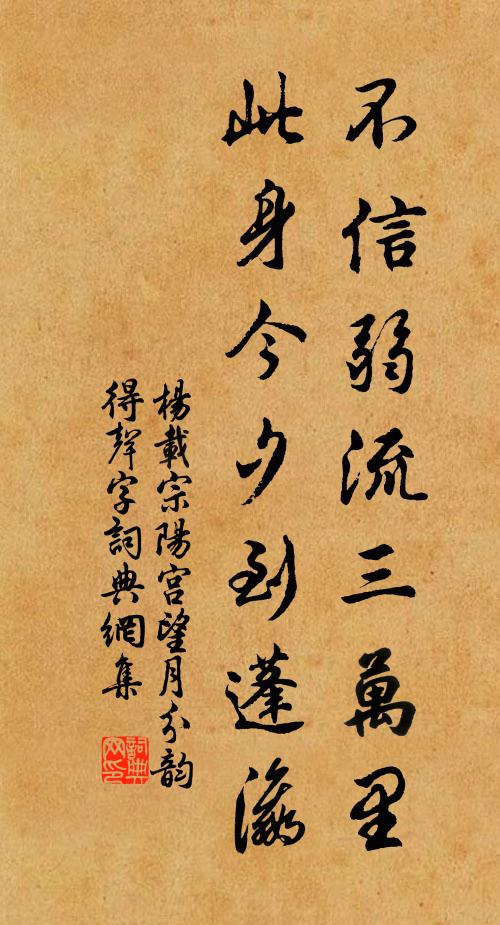 不信弱流三萬里
此身今夕到蓬瀛
楊載宗陽宮望月分韵
得聲字詞典網集
詞典
网印